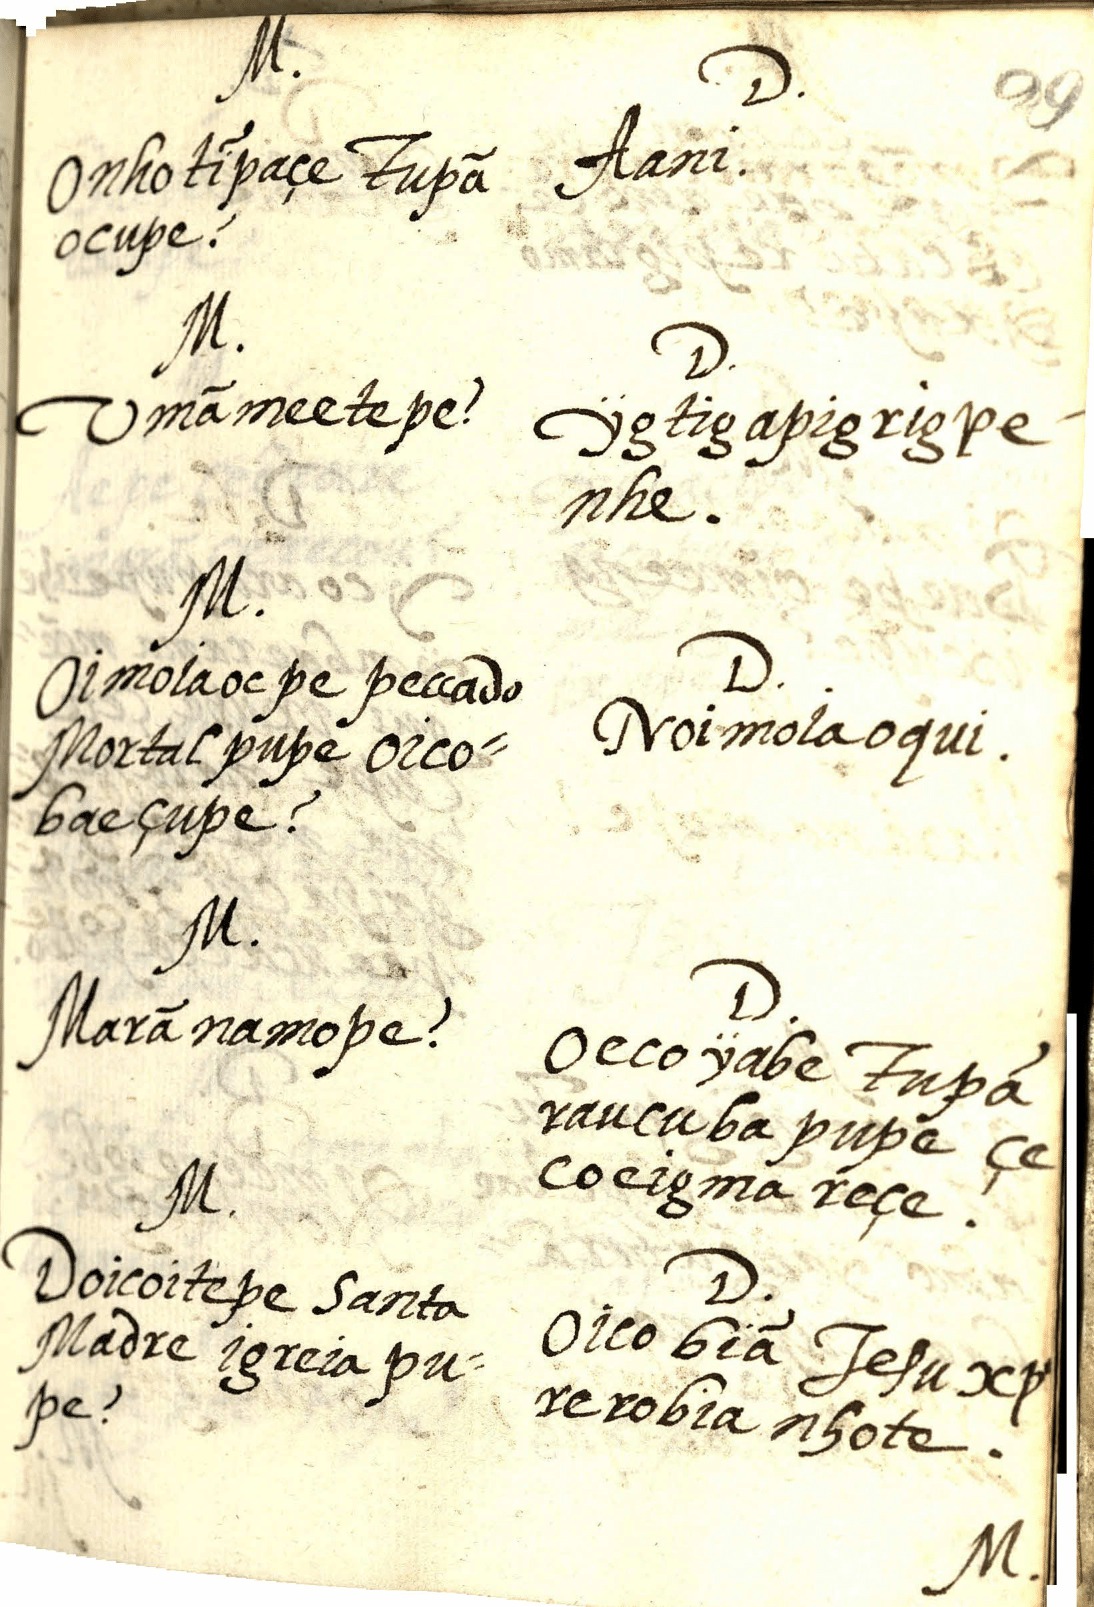 99
M.
Onho ti᷉paçe Tupã
ocupe?
D.
Aani.
M.
Vmã meetepe?
D.
Ÿgtigapigrigpe-
nhe.
M.
Oimolaoc pe peccado
Mortal pupe oico=
bae çupe?
D.
Noimola oqui.
M.
Marã namope?
D.
Oeco ÿabe Tupã
rauçuba pupe çe
coeigma reçe.
M.
Doicoitepe Santa
Madre igreia pu=
pe?
D.
Oico biã Jesu xp̃
rerobia nhote.
M.